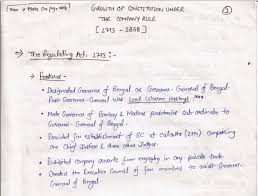 GROWTH OF CONSTITUTION UNDER
THE COMPANY RULE
[1773 - 1858]
①
→ The Regulating Act, 1773 :-
→ Features -
• Designated Governor of Bengal as Governor-General of Bengal.
First Governor-General was Lord Warren Hastings
• Made Governor of Bombay & Madras presidencies sub-ordinate to
Governor-General of Bengal.
• Provided for establishment of SC at Calcutta (1774) comprising
one Chief Justice & three other Judges.
• Prohibited Company servants from engaging in any private trade.
• Created the Executive Council of four members to assist Governor-
General of Bengal.